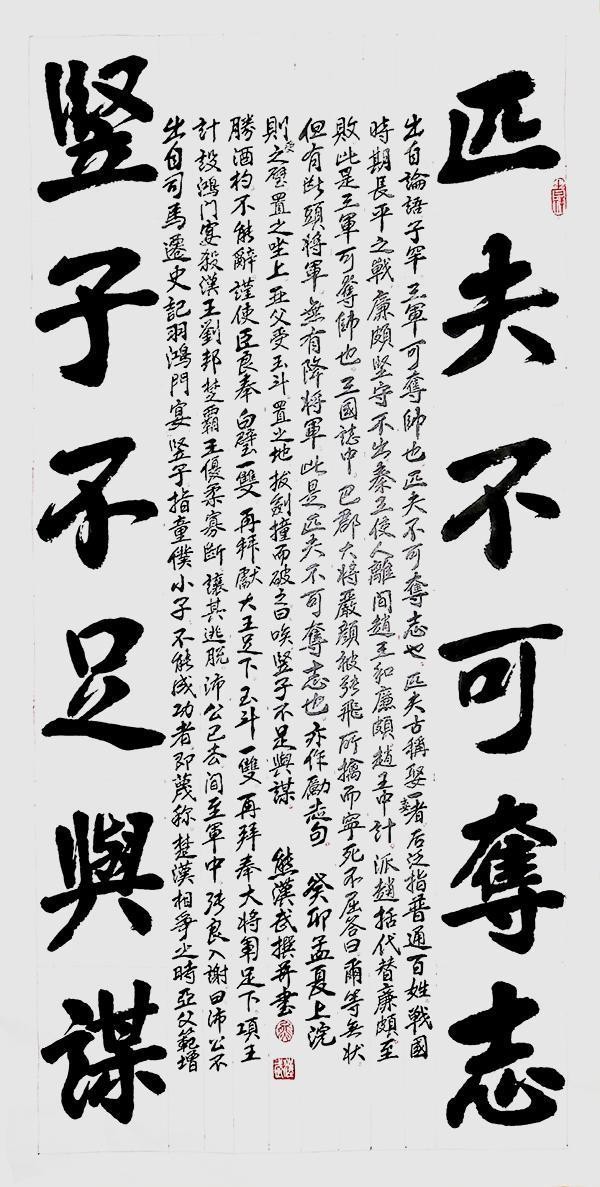 匹夫不可奪志
出自論語子罕 三軍可奪帥也匹夫不可奪志也 匹夫古稱娶一妻者后泛指普通百姓戰國
時期長平之戰廉頗堅守不出秦王使人離间趙王和廉頗趙王中计派趙括代替廉頗至
敗此是三軍可奪帥也三國誌中巴郡大将嚴顔被張飛所擒而寧死不屈答曰爾等無状
但有断頭将軍無有降将軍此是匹夫不可奪志也亦作勵志句 癸卯孟夏上浣
竪子不足與謀
出自司馬遷史記羽鴻門宴 竖子指童僕小子不能成功者即蔑称楚漢相争之時亞父範增
計設鴻门宴殺漢王劉邦楚霸王優柔寡断讓其逃脱沛公已去间至軍中張良入謝曰沛公不
勝酒杓不能辭謹使臣良奉白璧一雙再拜獻大王足下玉斗一雙再拜奉大将軍足下項王
則受之璧置之坐上亞父受玉斗置之地拔劍撞而破之曰唉竖子不足與謀 熊漢武撰并書